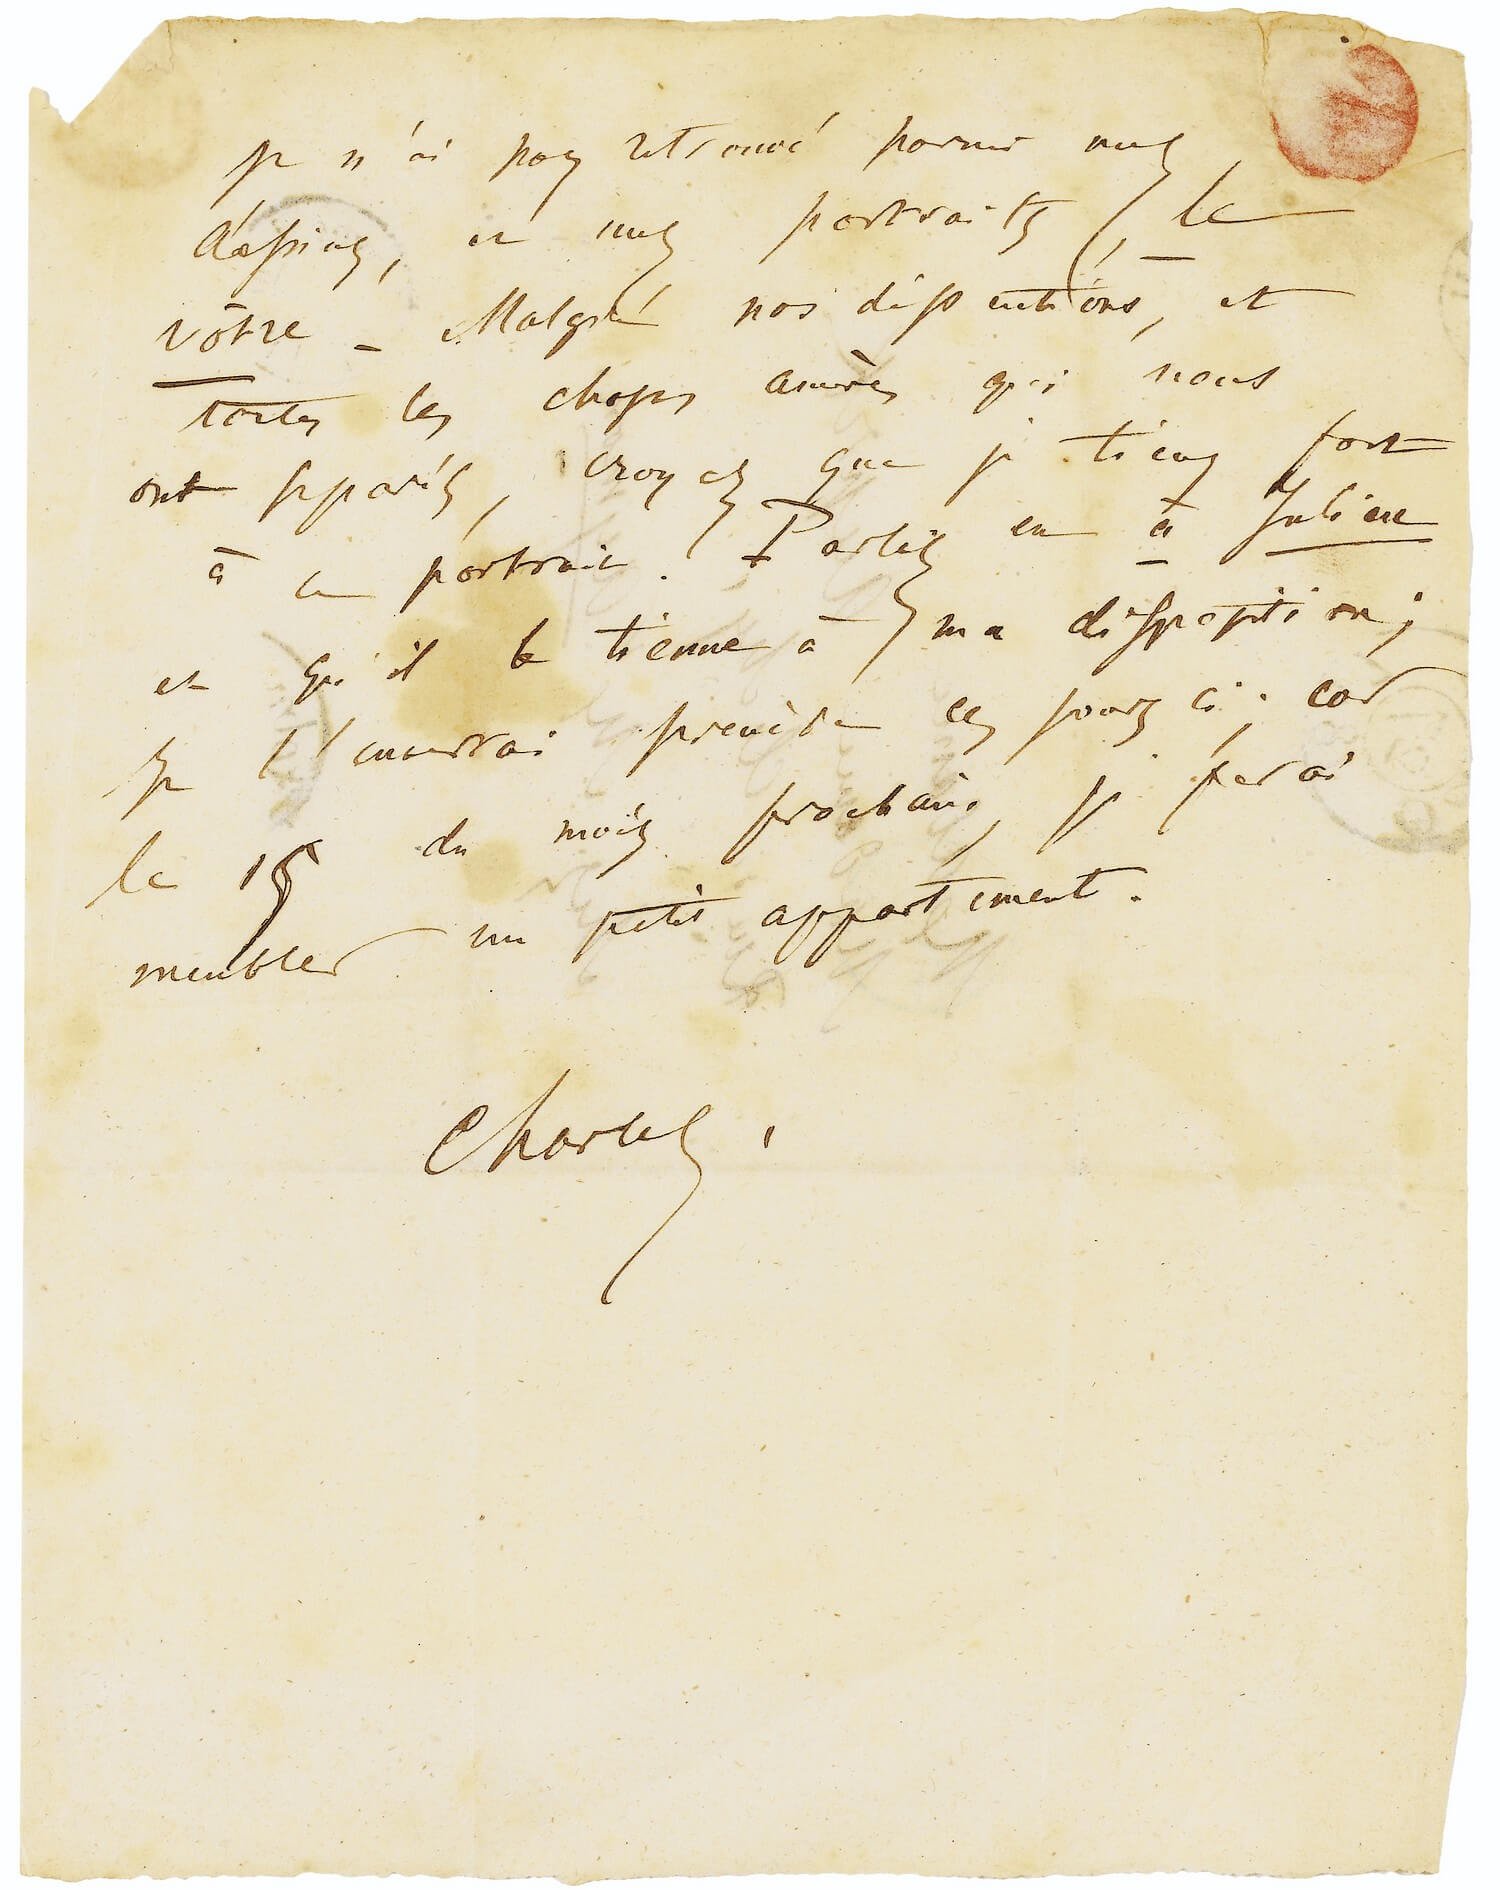 Je n'ai pas retrouvé parmi mes
dessins, et mes portraits, le
vôtre – Malgré nos dissentions, et
toutes les choses amères qui nous
ont séparés, croyez que je tiens fort
à ce portrait. Parlez en à Julien
et qu'il le tienne à ma disposition;
Je l'enverrai prendre ces jours ci; car
le 15 du mois prochain, je ferai
meubler un petit appartement.
Charles.